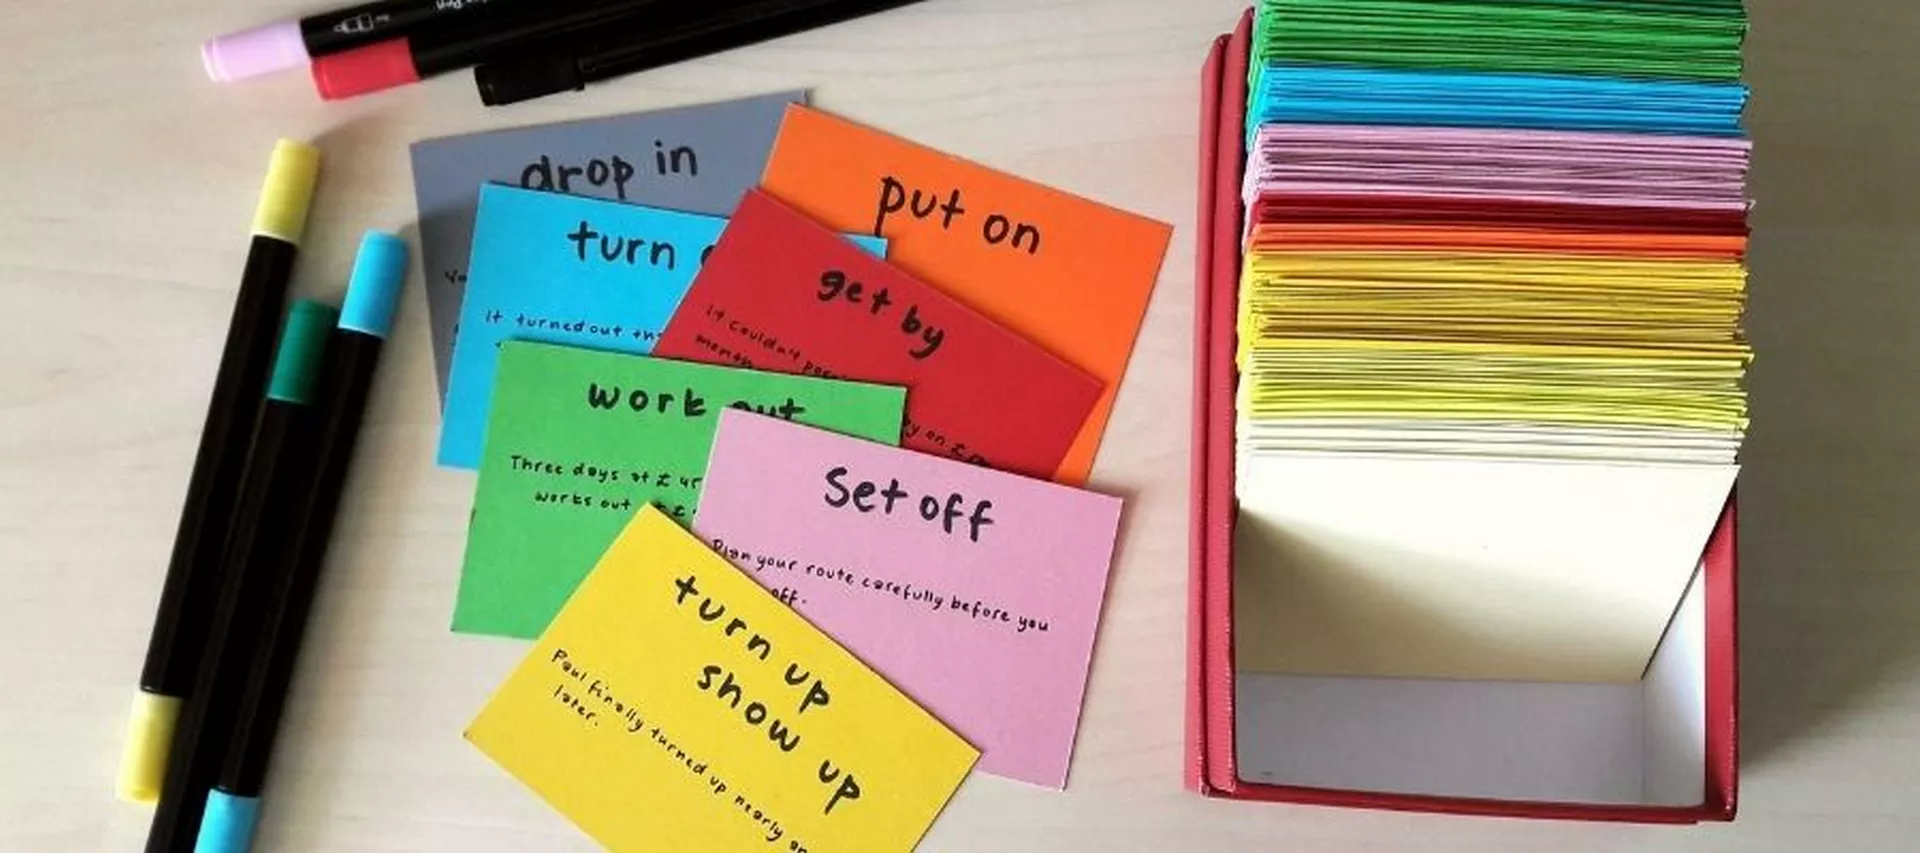 drop in
put on
turn
It turned out
get by
It couldn't
by on £
work out
Three days at £
works out
Set off
Plan your route carefully before you
off.
turn up
show up
Paul finally turned up nearly an
later.
Pen